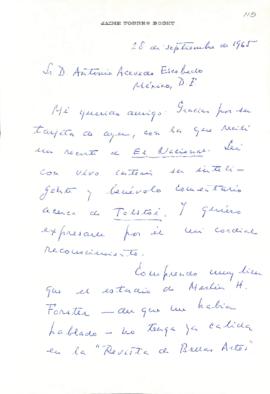 119
JAIME TORRES BODET
28 de septiembre de 1965
Sr. D. Antonio Acevedo Escobedo
México, D. F.
Mi querido amigo: Gracias por su
tarjeta de ayer, con la que recibí
un recorte de El Nacional. Leí
con vivo interés su inteli-
gente y benévolo comentario
acerca de Tolstoi. Y quiero
expresarle por él mi cordial
reconocimiento.
Comprendo muy bien
que el estudio de Merlin H.
Forster – del que me había
hablado – no tenga ya cabida
en la "Revista de Bellas Artes"